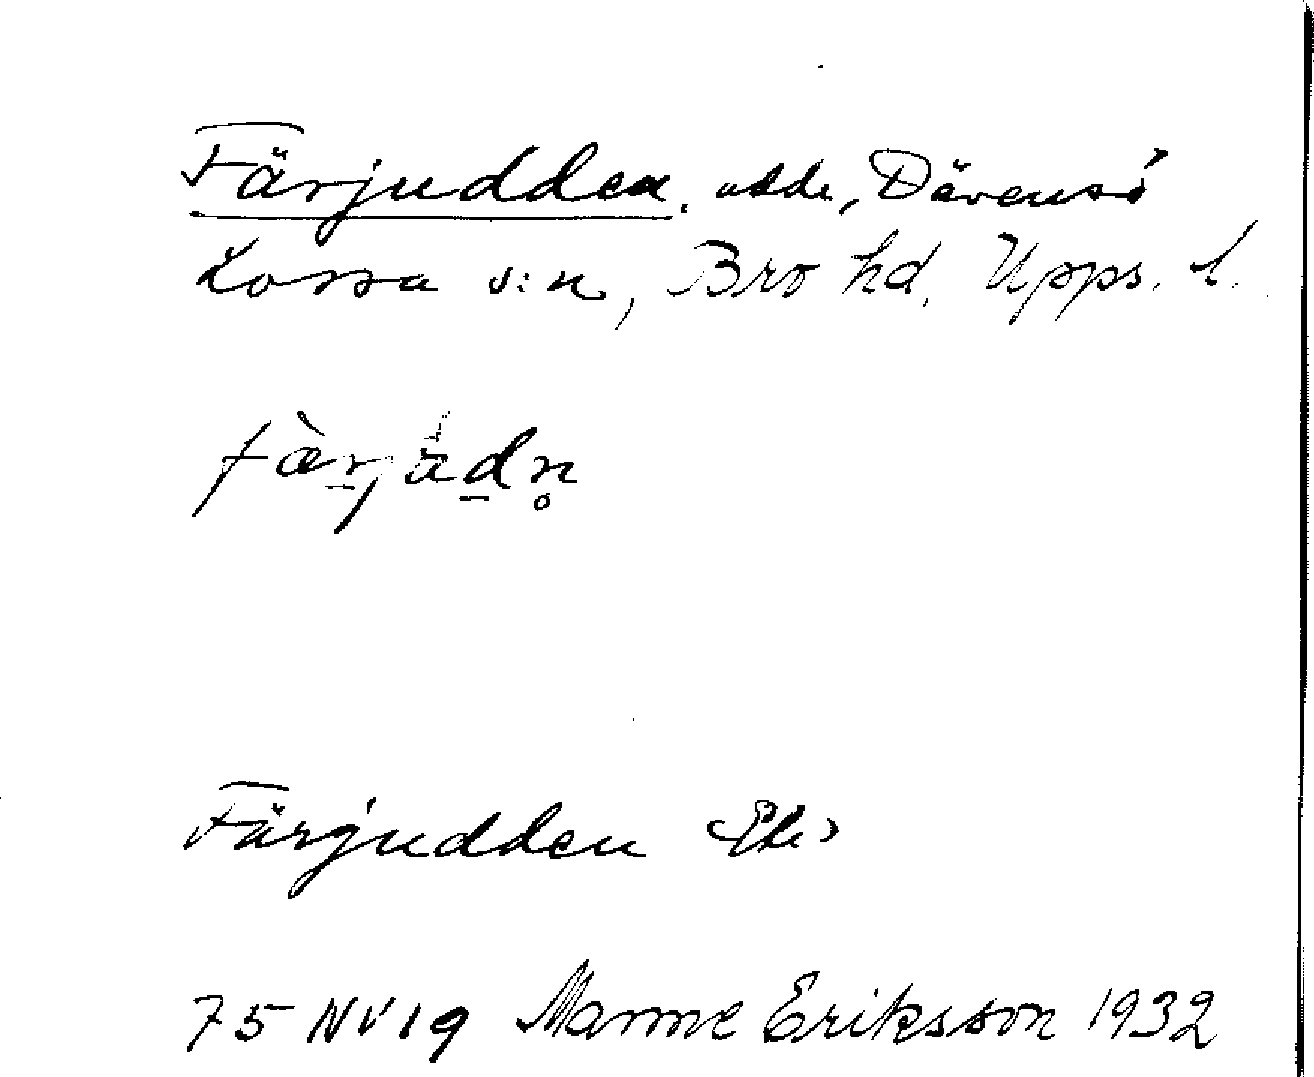 Färjudden, udde, Dävensö
Kossa s:n, Bro hd, Upps. l.
Färjudden Ek,
75 NV 19 Manne Eriksson 1932